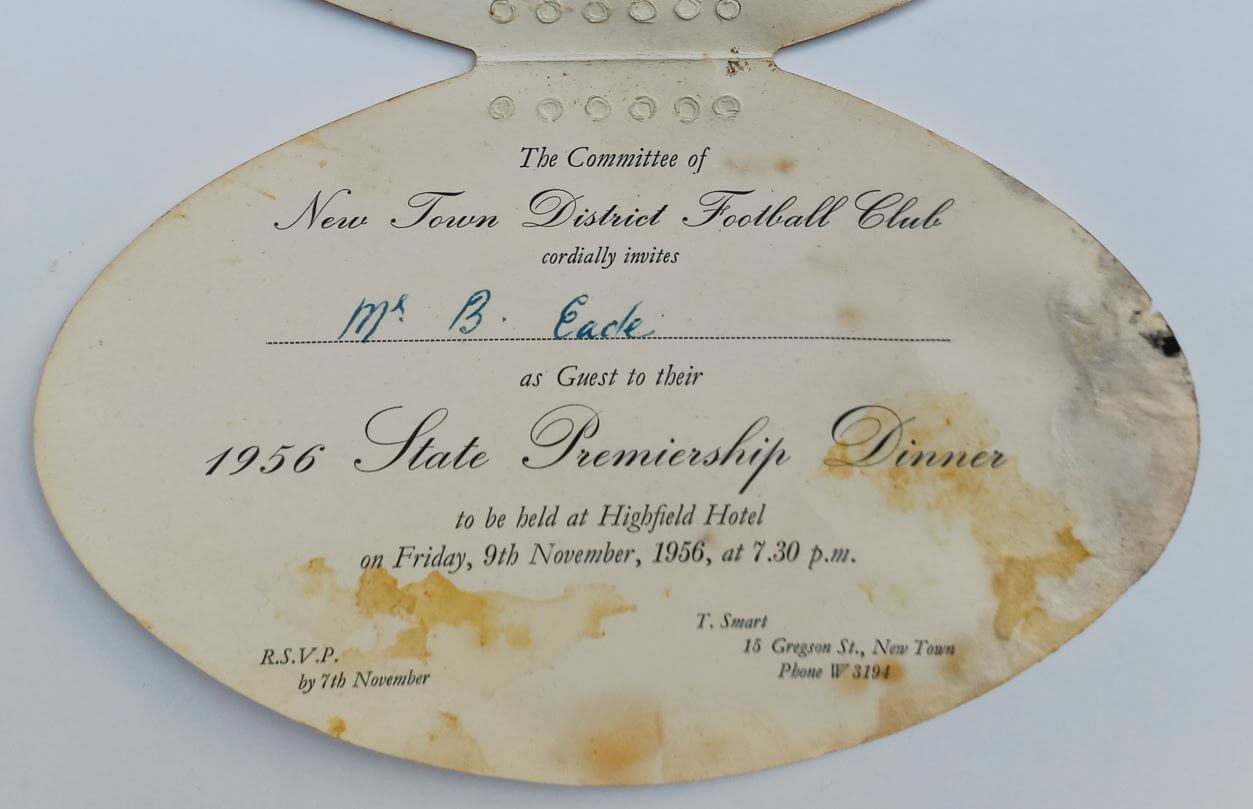 The Committee of
New Town District Football Club
cordially invites
Mr B. Eade
as Guest to their
1956 State Premiership Dinner
to be held at Highfield Hotel
on Friday, 9th November, 1956, at 7.30 p.m.
T. Smart
15 Gregson St., New Town
Phone W 3194
R.S.V.P.
by 7th November